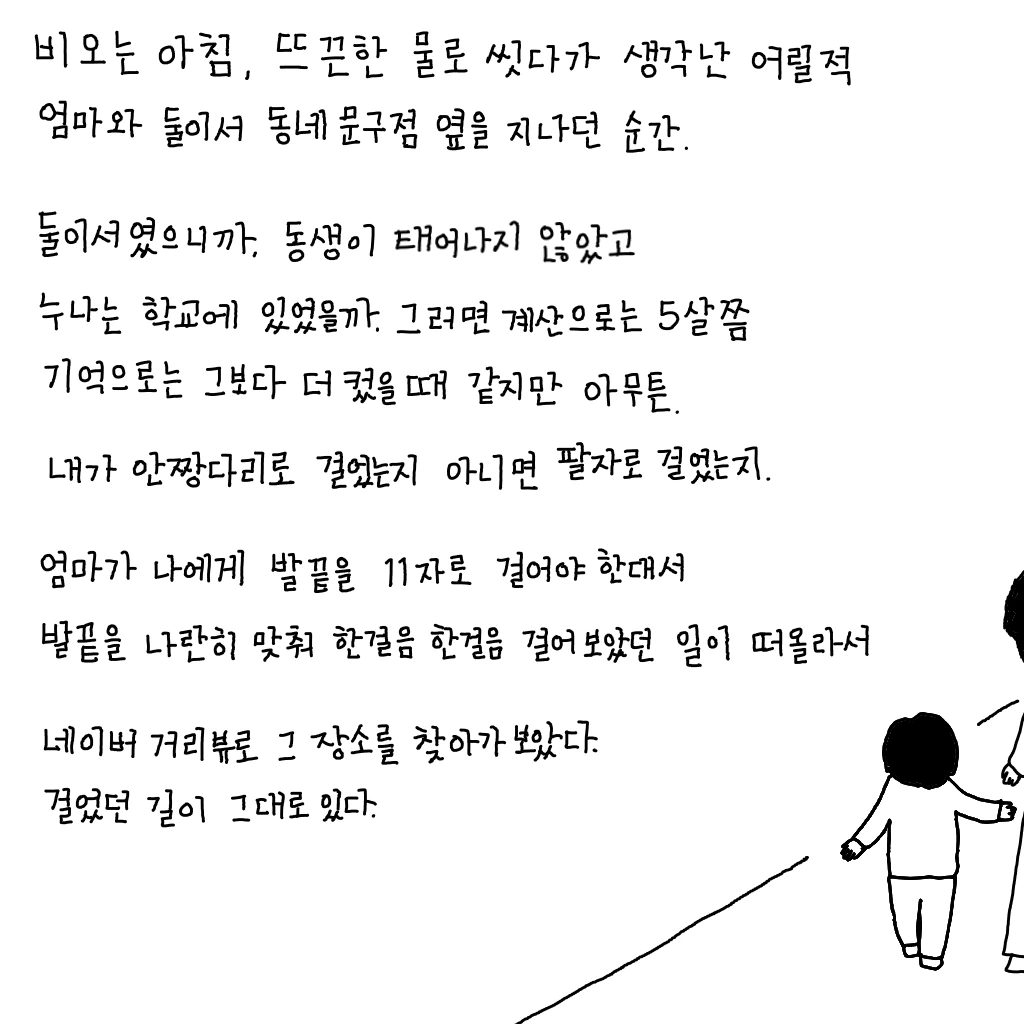 비오는 아침, 뜨끈한 물로 씻다가 생각난 어릴적
엄마와 둘이서 동네 문구점 옆을 지나던 순간.
둘이서였으니까, 동생이 태어나지 않았고
누나는 학교에 있었을까. 그러면 계산으로는 5살쯤
기억으로는 그보다 더 컸을때 같지만 아무튼.
내가 안짱다리로 걸었는지 아니면 팔자로 걸었는지.
엄마가 나에게 발끝을 11자로 걸어야 한대서
발끝을 나란히 맞춰 한걸음 한걸음 걸어보았던 일이 떠올라서
네이버 거리뷰로 그 장소를 찾아가보았다.
걸었던 길이 그대로 있다.